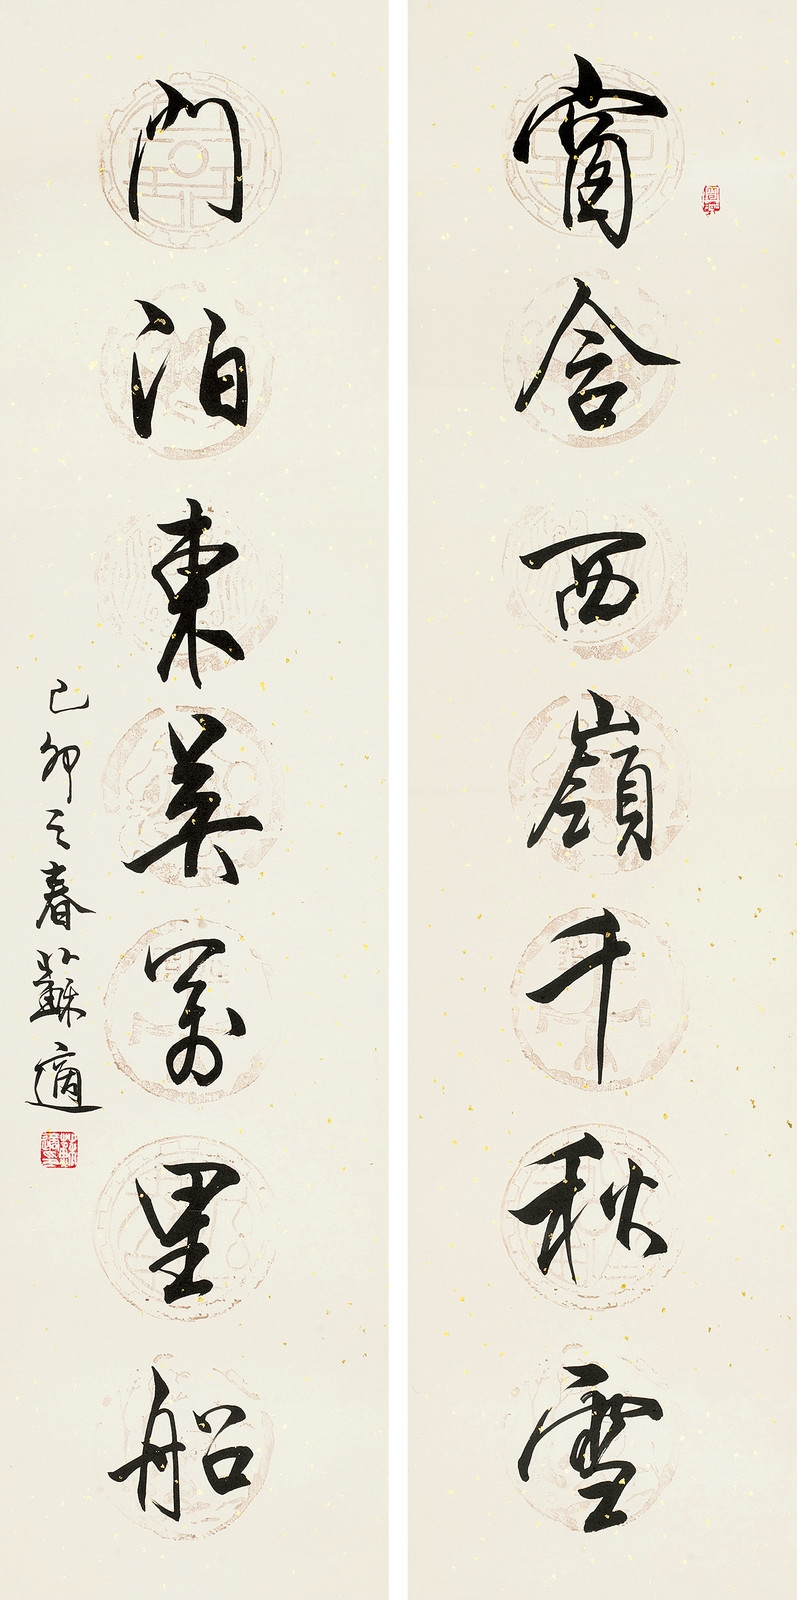 窗含西嶺千秋雪
門泊東吳萬里船
己卯之春蘇適